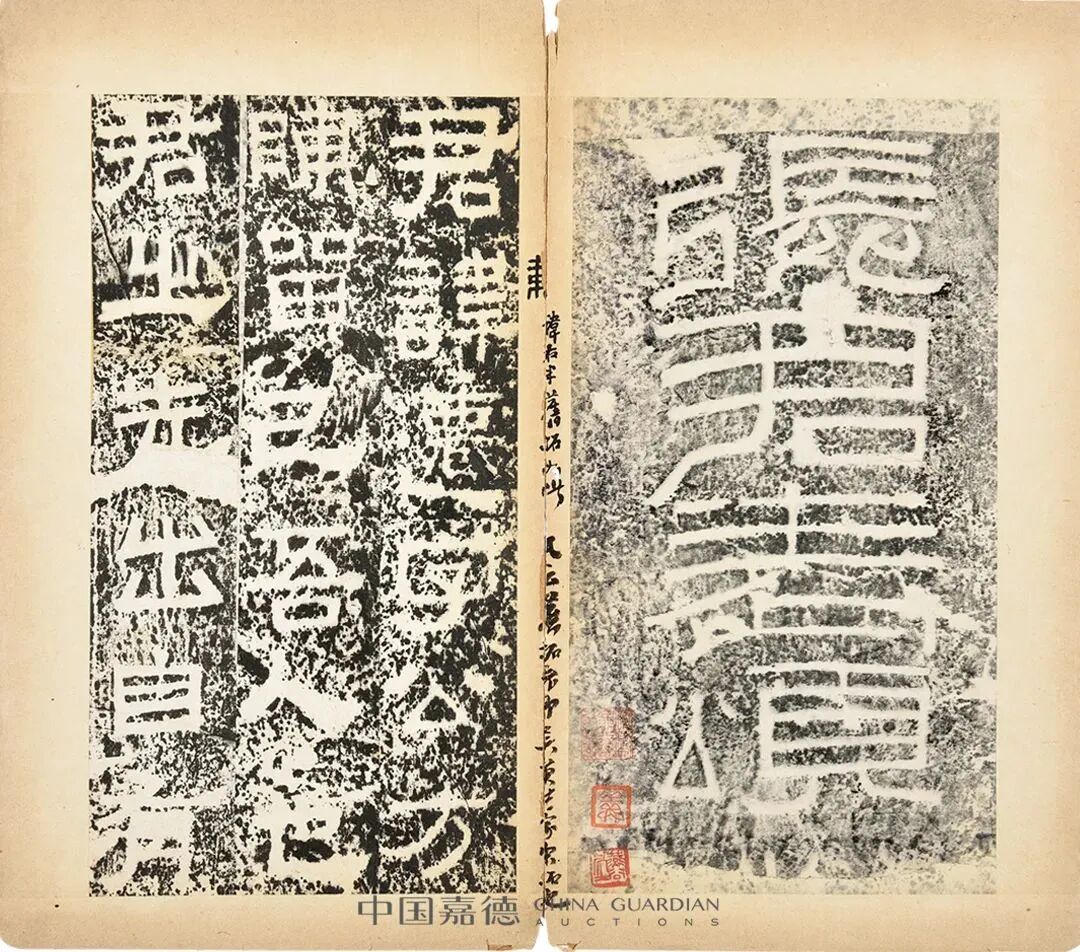 張君表頌
諱右半舊拓如此
君諱遷字公方
陳留己吾人也
君之先出自有
中国嘉德 CHINA GUARDIAN
AUCTIONS